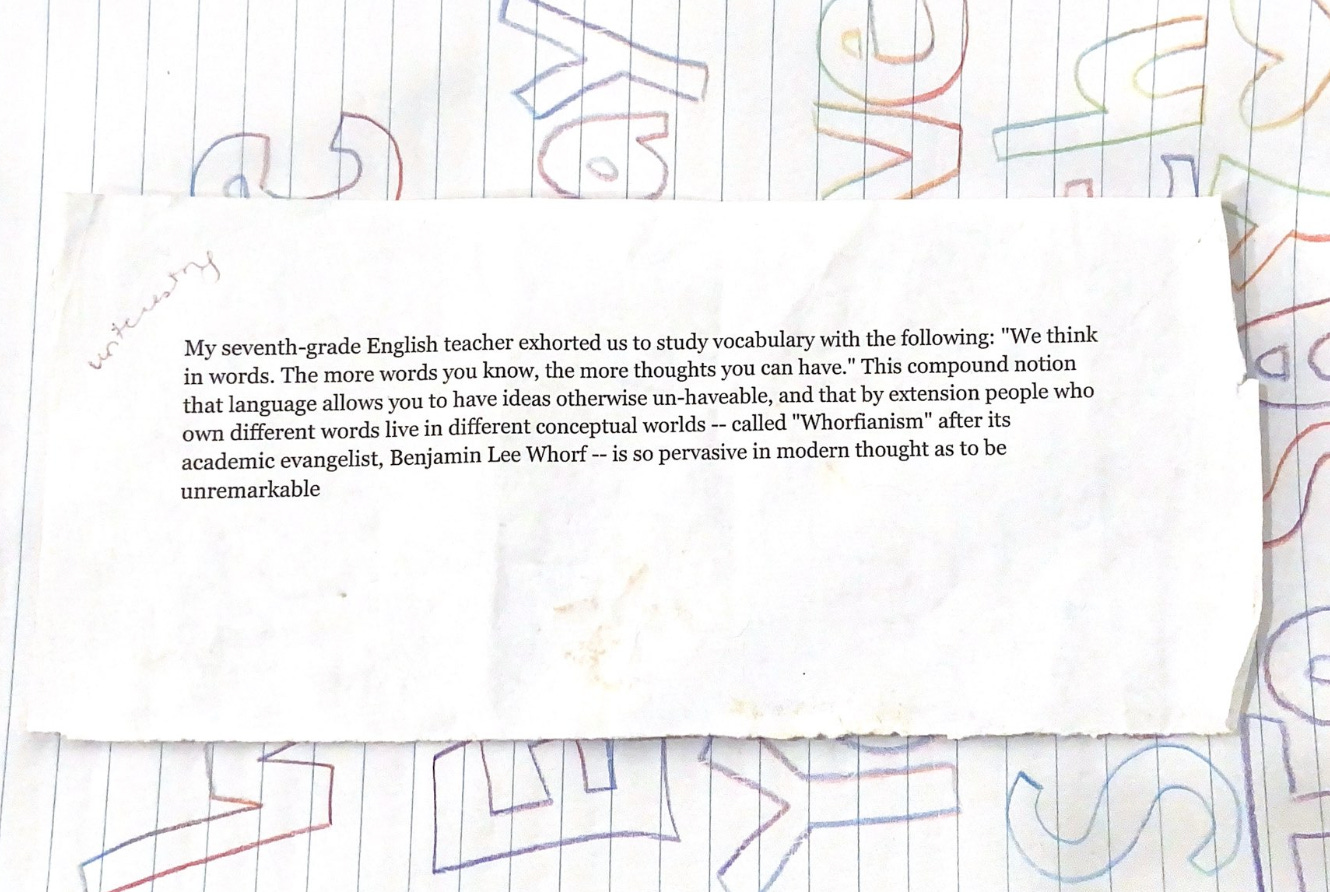 interesting
My seventh-grade English teacher exhorted us to study vocabulary with the following: "We think
in words. The more words you know, the more thoughts you can have." This compound notion
that language allows you to have ideas otherwise un-haveable, and that by extension people who
own different words live in different conceptual worlds -- called "Whorfianism" after its
academic evangelist, Benjamin Lee Whorf -- is so pervasive in modern thought as to be
unremarkable